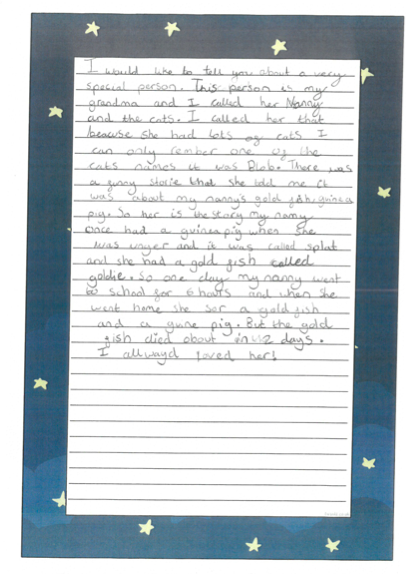 I would like to tell you about a very
special person. This person is my
grandma and I called her Nanny
and the cats. I called her that
because she had lots of cats I
can only rember one of the
cats names it was Blob. There was
a funny storie that she told me it
was about my nanny's gold fish guinea
pig. So her is the story my nany
once had a guinea pig when she
was unger and it was called splat
and she had a gold fish called
goldie. So one day my nanny went
to school for 6 hours and when she
went home she sor a gold fish
and a guine pig. But the gold
fish died about in 2 days.
I allwayd loved her!